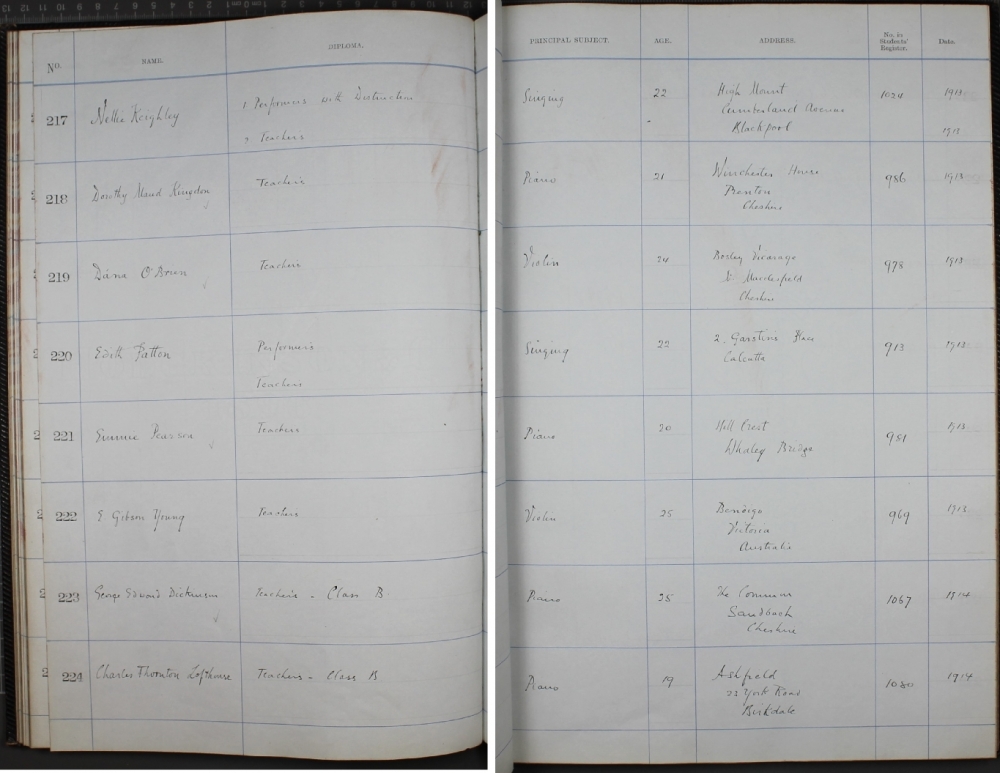 No. NAME. DIPLOMA. PRINCIPAL SUBJECT. AGE. ADDRESS. No. in Students' Register. Date.
217 Nellie Keighley 1 Performers with Distinction Singing 22 High Mount 1024 1913
Cumberland Avenue
2 Teachers Blackpool 1913
218 Dorothy Maud Kingdon Teachers Piano 21 Winchester House 986 1913
Prenton
Cheshire
219 Dana O'Brien Teachers Violin 24 Bosley Vicarage 978 1913
Nr Macclesfield
Cheshire
220 Edith Patton Performers Singing 22 2. Garstins Place 913 1913
Calcutta
Teachers
221 Emmie Pearson Teachers Piano 20 Hill Crest 951 1913
Whaley Bridge
222 E Gibson Young Teachers Violin 25 Bendigo 969 1913
Victoria
Australia
223 George Edward Dickinson Teachers - Class B Piano 25 The Common 1067 1914
Sandbach
Cheshire
224 Charles Thornton Lofthouse Teachers - Class B Piano 19 Ashfield 1080 1914
23 York Road
Birkdale